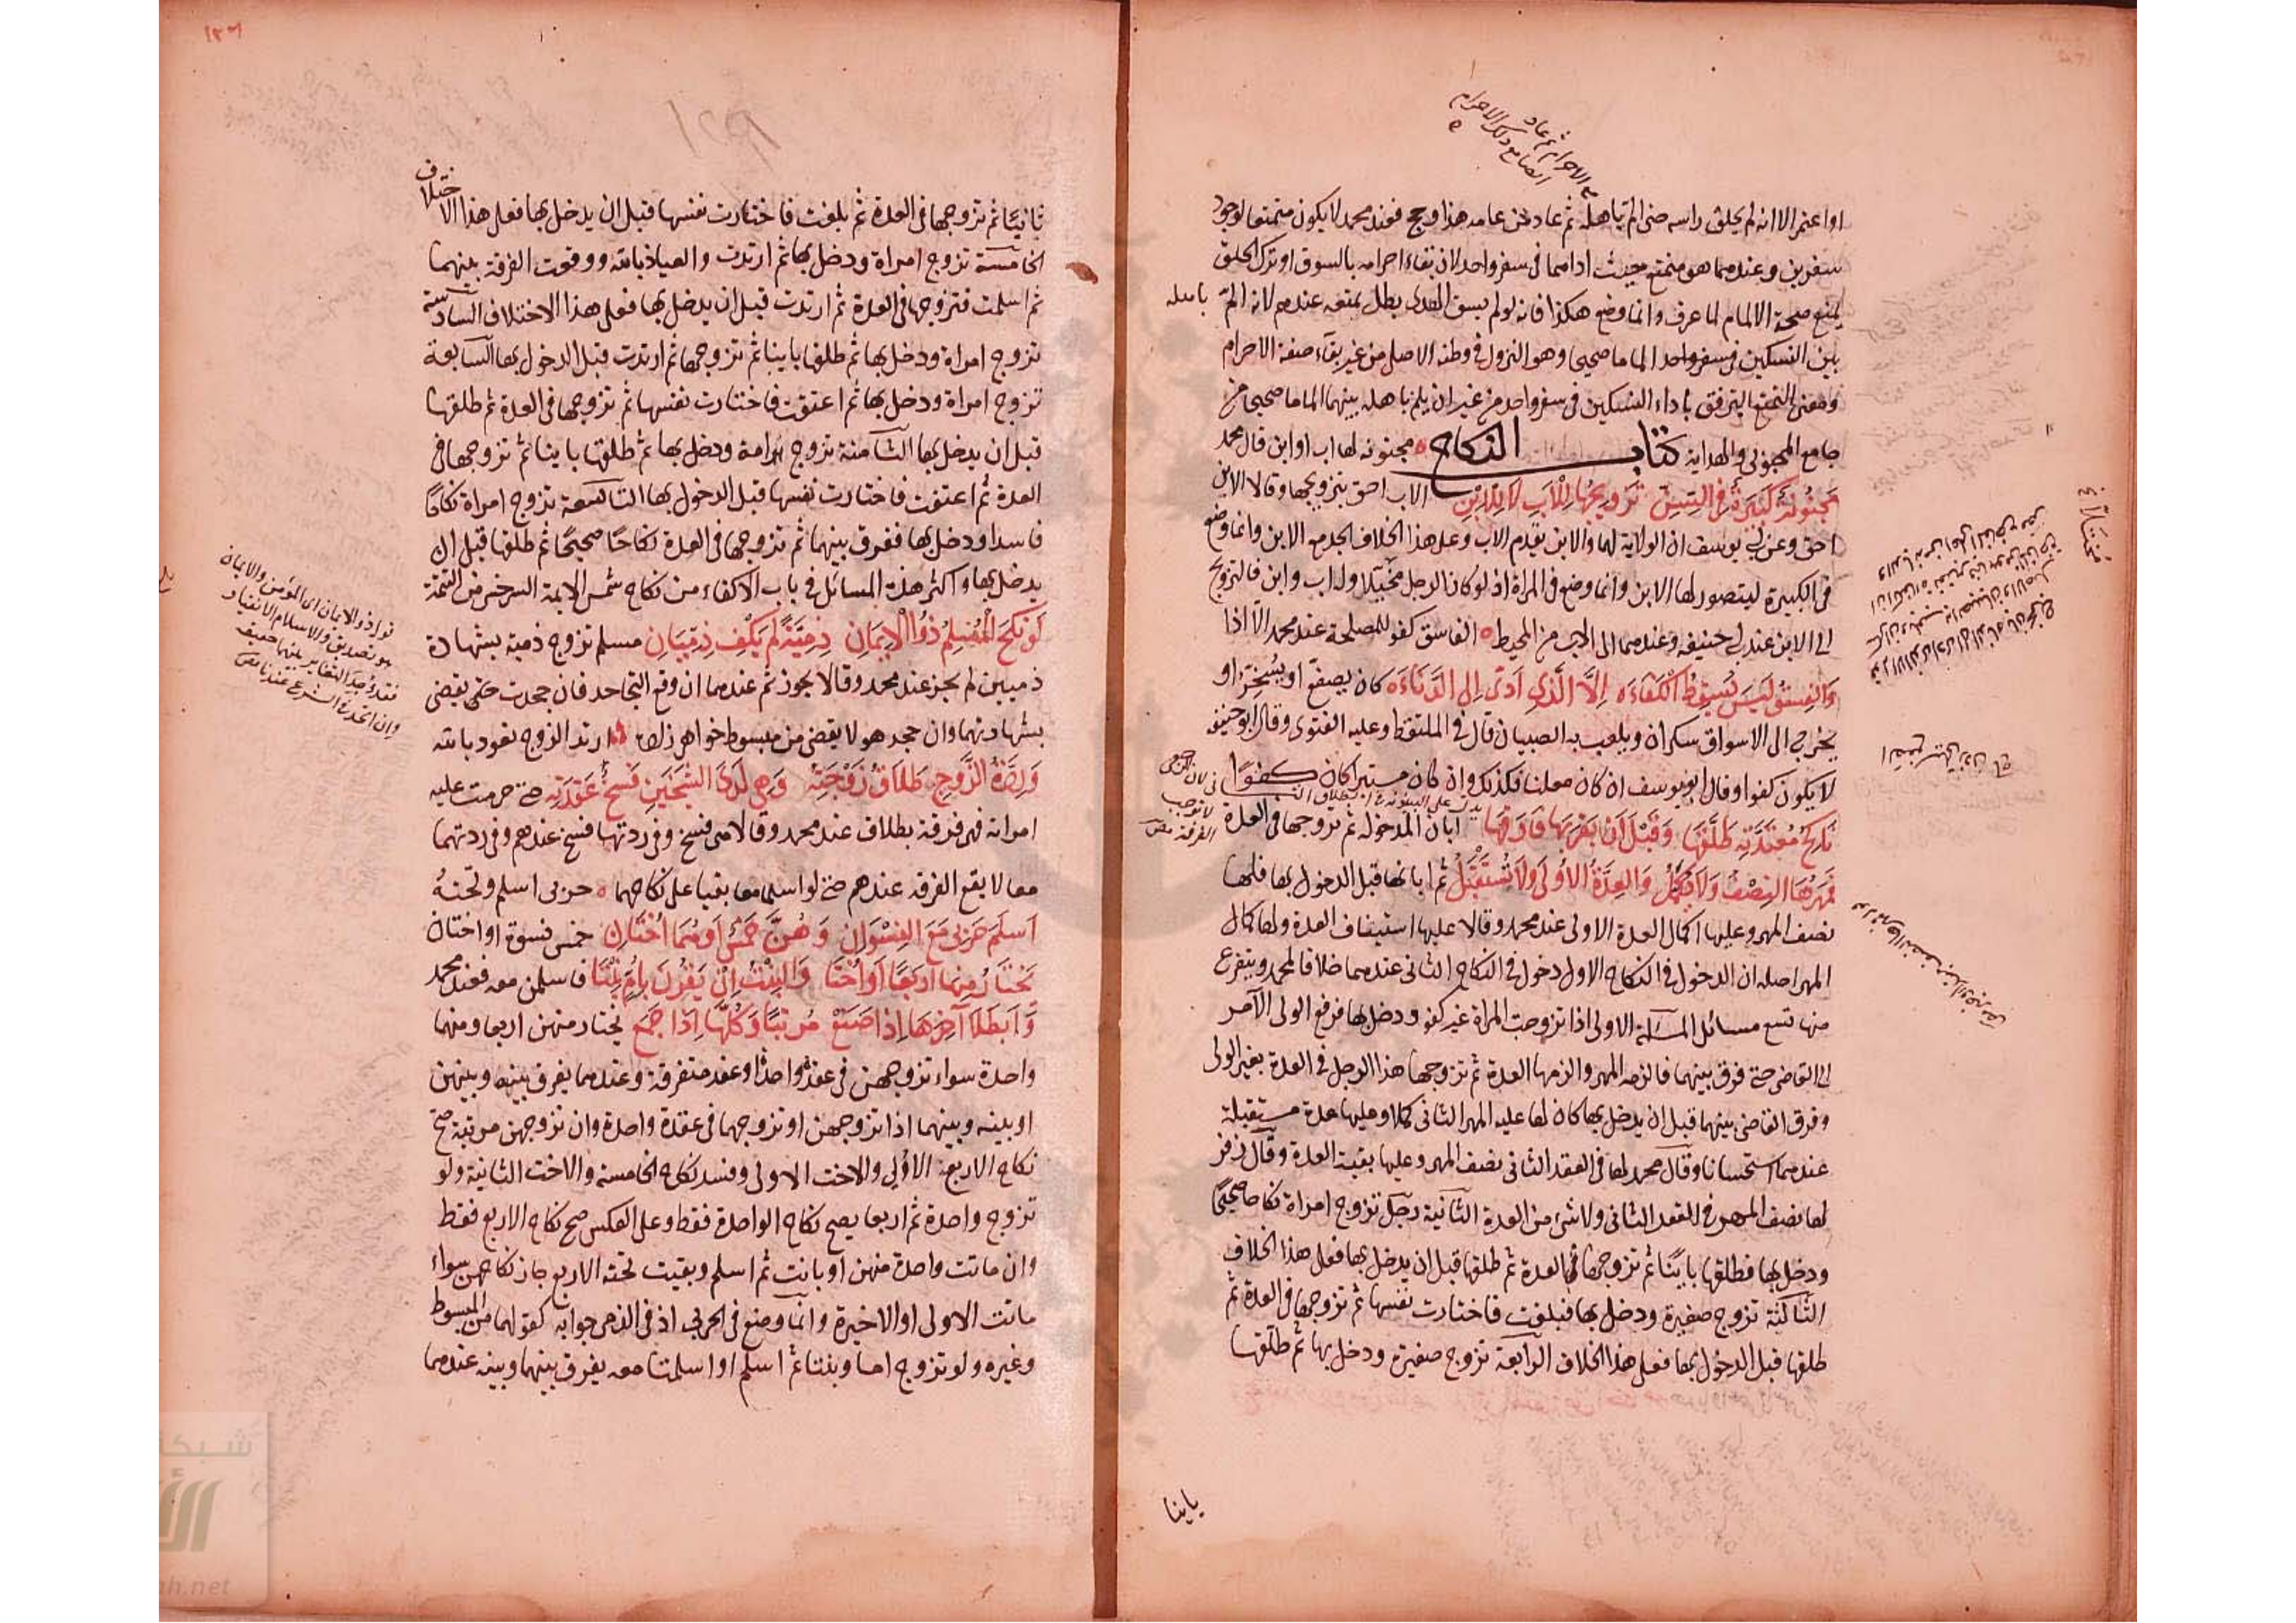 او اعتمر الا انه لم يحلق راسه حتى الم باهله ثم عاد من عامه هذا وحج فعند محمد لا يكون متمتعا لوجود
سفرين وعندهما هو متمتع حيث اداهما في سفر واحد لان بقاء احرامه بالسوق او ترك الحلق
يمنع صحة الالمام لما عرف وانما وضع هكذا فانه لو لم يسق الهدى بطل تمتعه عندهم لانه الم باهله
بين النسكين في سفر واحد الماما صحيحا وهو النزول في وطنه الاصلى من غير بقاء صفة الاحرام
ومعنى التمتع الترفق باداء النسكين في سفر واحد من غير ان يلم باهله بينهما الماما صحيحا من
جامع المحبوبى والهداية كتاب النكاح مجنونة لها اب او ابن قال محمد
مجنونة كبيرة في السن تزويجها للاب لا للابن الاب احق بتزويجها وقالا الابن
احق وعن ابى يوسف ان الولاية لهما والابن يقدم الاب وعلى هذا الخلاف الجد مع الابن وانما وضع
في الكبيرة ليتصور لها الابن وانما وضع في المراة اذ لو كان الرجل وله اب وابن فالتزويج
الى الابن عند ابى حنيفه وعندهما الى الاب من المحيط الفاسق كفو للمصلحة عند محمد الا اذا
والفسق ليس يسقط الكفاءه الا الذى ادى الى الدناءه كان يصفع او يسخر او
يخرج الى الاسواق سكران ويلعب به الصبيان قال في الملتقط وعليه الفتوى وقال ابو حنيفه
لا يكون كفوا وقال ابو يوسف ان كان معلنا فكذلك وان كان مستترا كان كفوا
ناكح معتدته طلقها وقبل ان يقربها فارقها ابان المدخوله ثم تزوجها في العدة
فمهرها النصف ولا يكمل والعدة الاولى ولا تستقبل ثم ابانها قبل الدخول بها فلها
نصف المهر وعليها اكمال العدة الاولى عند محمد وقالا عليها استيناف العدة ولها كمال
المهر اصله ان الدخول في النكاح الاول دخول في النكاح الثانى عندهما خلافا لمحمد ويتفرع
منها تسع مسائل المسالة الاولى اذا تزوجت المراة غير كفو ودخل بها فرفع الولى الامر
الى القاضى حتى فرق بينهما فالزمه المهر والزمها العدة ثم تزوجها هذا الرجل في العدة بغير الولى
وفرق القاضى بينهما قبل ان يدخل بها كان لها عليه المهر الثانى كملا وعليها عدة مستقبلة
عندهما استحسانا وقال محمد لها في العقد الثانى نصف المهر وعليها بقية العدة وقال زفر
لها نصف المهر في العقد الثانى ولا شئ من العدة الثانية رجل تزوج امراة نكاحا صحيحا
ودخل بها فطلقها باينا ثم تزوجها في العدة ثم طلقها قبل ان يدخل بها فعلى هذا الخلاف
الثالثة تزوج صغيرة ودخل بها فبلغت فاختارت نفسها ثم تزوجها في العدة ثم
طلقها قبل الدخول بها فعلى هذا الخلاف الرابعة تزوج صغيرة ودخل بها ثم طلقها
باينا
ثانيا ثم تزوجها في العدة ثم بلغت فاختارت نفسها قبل ان يدخل بها فعلى هذا الاختلاف
الخامسة تزوج امراة ودخل بها ثم ارتدت والعياذ بالله ووقعت الفرقة بينهما
ثم اسلمت فتزوجها في العدة ثم ارتدت قبل ان يدخل بها فعلى هذا الاختلاف السادسة
تزوج امراة ودخل بها ثم طلقها باينا ثم تزوجها ثم ارتدت قبل الدخول بها السابعة
تزوج امراة ودخل بها ثم اعتقت فاختارت نفسها ثم تزوجها في العدة ثم طلقها
قبل ان يدخل بها الثامنة تزوج امة ودخل بها ثم طلقها باينا ثم تزوجها في
العدة ثم اعتقت فاختارت نفسها قبل الدخول بها التاسعة تزوج امراة نكاحا
فاسدا ودخل بها ففرق بينهما ثم تزوجها في العدة نكاحا صحيحا ثم طلقها قبل ان
يدخل بها واكثر هذه المسائل في باب الاكفاء من نكاح شمس الايمة السرخسى من التتمة
لو نكح المسلم ذو الايمان ذمية لم يكف ذميان مسلم تزوج ذمية بشهادة
ذميين لم يجز عند محمد وقالا يجوز ثم عندهما ان وقع التجاحد فان جحدت حتى يقضى
بشهادتهما وان جحد هو لا يقضى من مبسوط خواهر زاده ارتد الزوج نعوذ بالله
وردة الزوج طلاق زوجته وهى لدى الشيخين فسخ عقدته حتى حرمت عليه
امراته فهى فرقة بطلاق عند محمد وقالا هى فسخ وفي ردتها فسخ عندهم وفي ردتهما
معا لا يقع الفرقه عندهم حتى لو اسلما معا بقيا على نكاحهما حربى اسلم وتحته
اسلم حربى مع النسوان وهن خمس او هما اختان خمس نسوة او اختان
تختار منها اربعا او اختا والبنت ان يقرن بام بنتا فاسلمن معه فعند محمد
وابطلا آخرها اذا صنع مرتبا وكلها اذا جمع يختار منهن اربعا ومنهما
واحدة سواء تزوجهن في عقد واحد او عقد متفرقة وعندهما يفرق بينه وبينهن
او بينه وبينهما اذا تزوجهن او تزوجهما في عقدة واحدة وان تزوجهن مرتبة صح
نكاح الاربع الاولى والاخت الاولى وفسد نكاح الخامسة والاخت الثانية ولو
تزوج واحدة ثم اربعا يصح نكاح الواحدة فقط وعلى العكس صح نكاح الاربع فقط
وان ماتت واحدة منهن او بانت ثم اسلم وبقيت تحته الاربع جاز نكاحهن سواء
ماتت الاولى او الاخيرة وانما وضع في الحربى اذ في الذمى جوابه كقولهما من المبسوط
وغيره ولو تزوج اما وبنتا ثم اسلم او اسلمتا معه يفرق بينهما وبينه عندهما